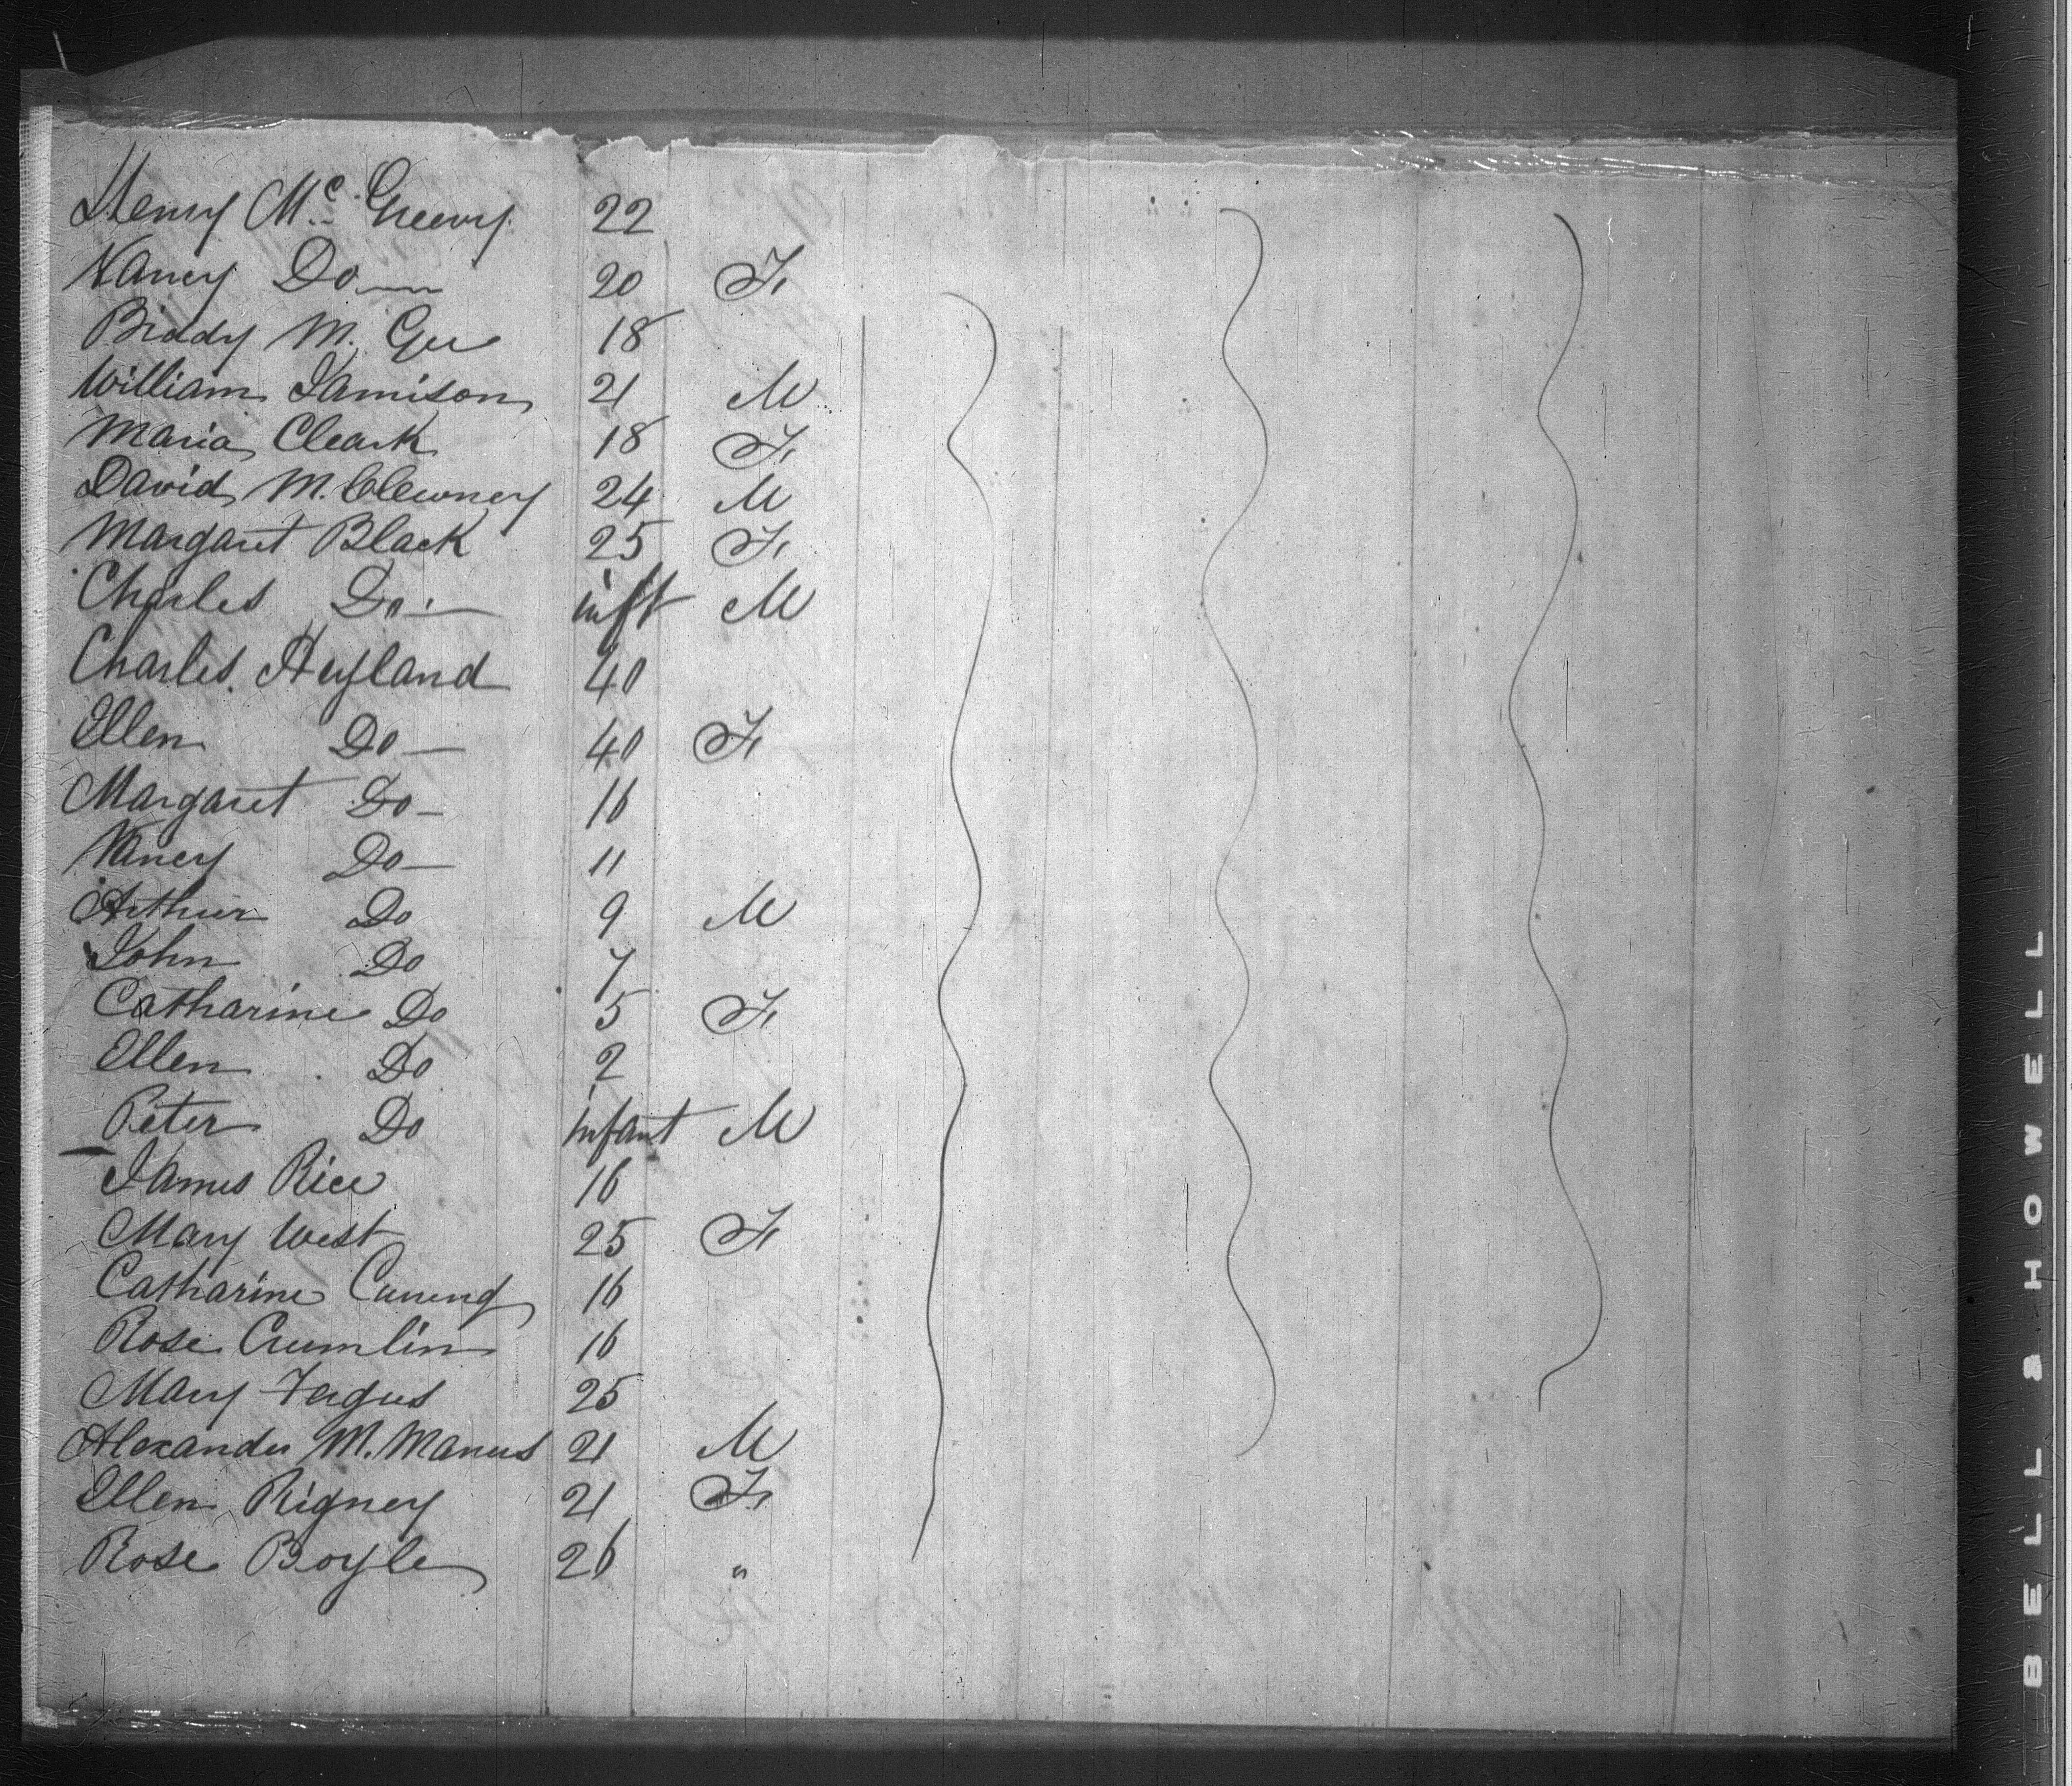 Henry Mc Greevy 22
Nancy Do 20 F.
Briddy M. Gee 18
William Jamison 21 M
Maria Cleark 18 F.
David M. Clewney 24 M
Margaret Black 25 F.
Charles Do inft M
Charles Heyland 40
Ellen Do 40 F.
Margaret Do 16
Nancy Do 11
Arthur Do 9 M
John Do 7
Catharine Do 5 F.
Ellen Do 2
Peter Do infant M
James Rice 16
Mary West 25 F.
Catharine 16
Rose Crumlin 16
Mary Fergus 25
Alexander M. Manus 21 M
Ellen Rigney 21 F.
Rose Boyle 26 "
BELL & HOWELL